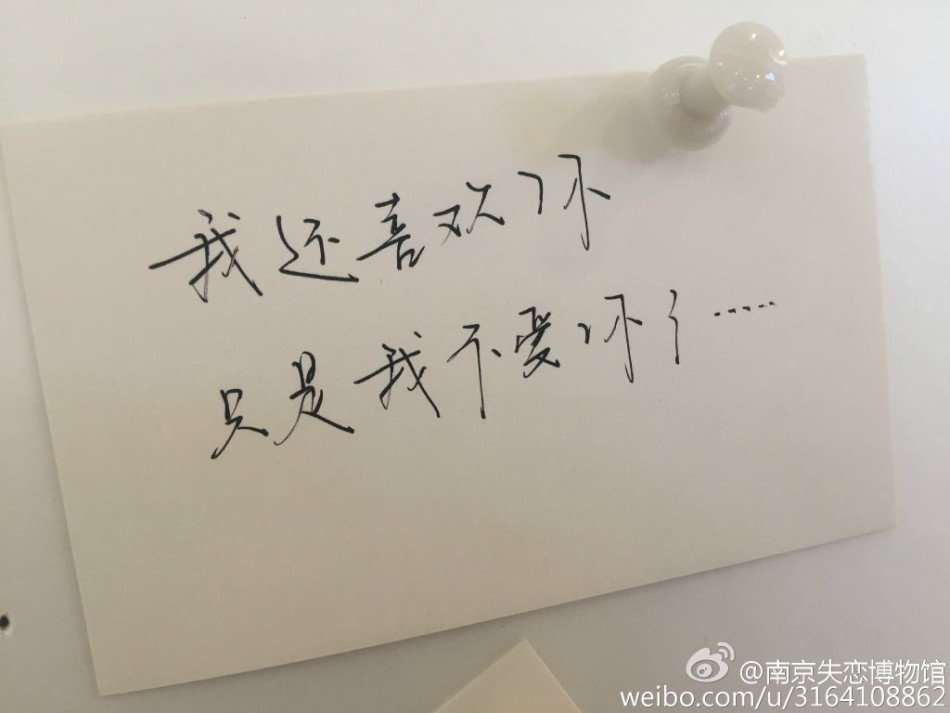 我还喜欢你
只是我不爱你了……
@南京失恋博物馆
weibo.com/u/3164108862